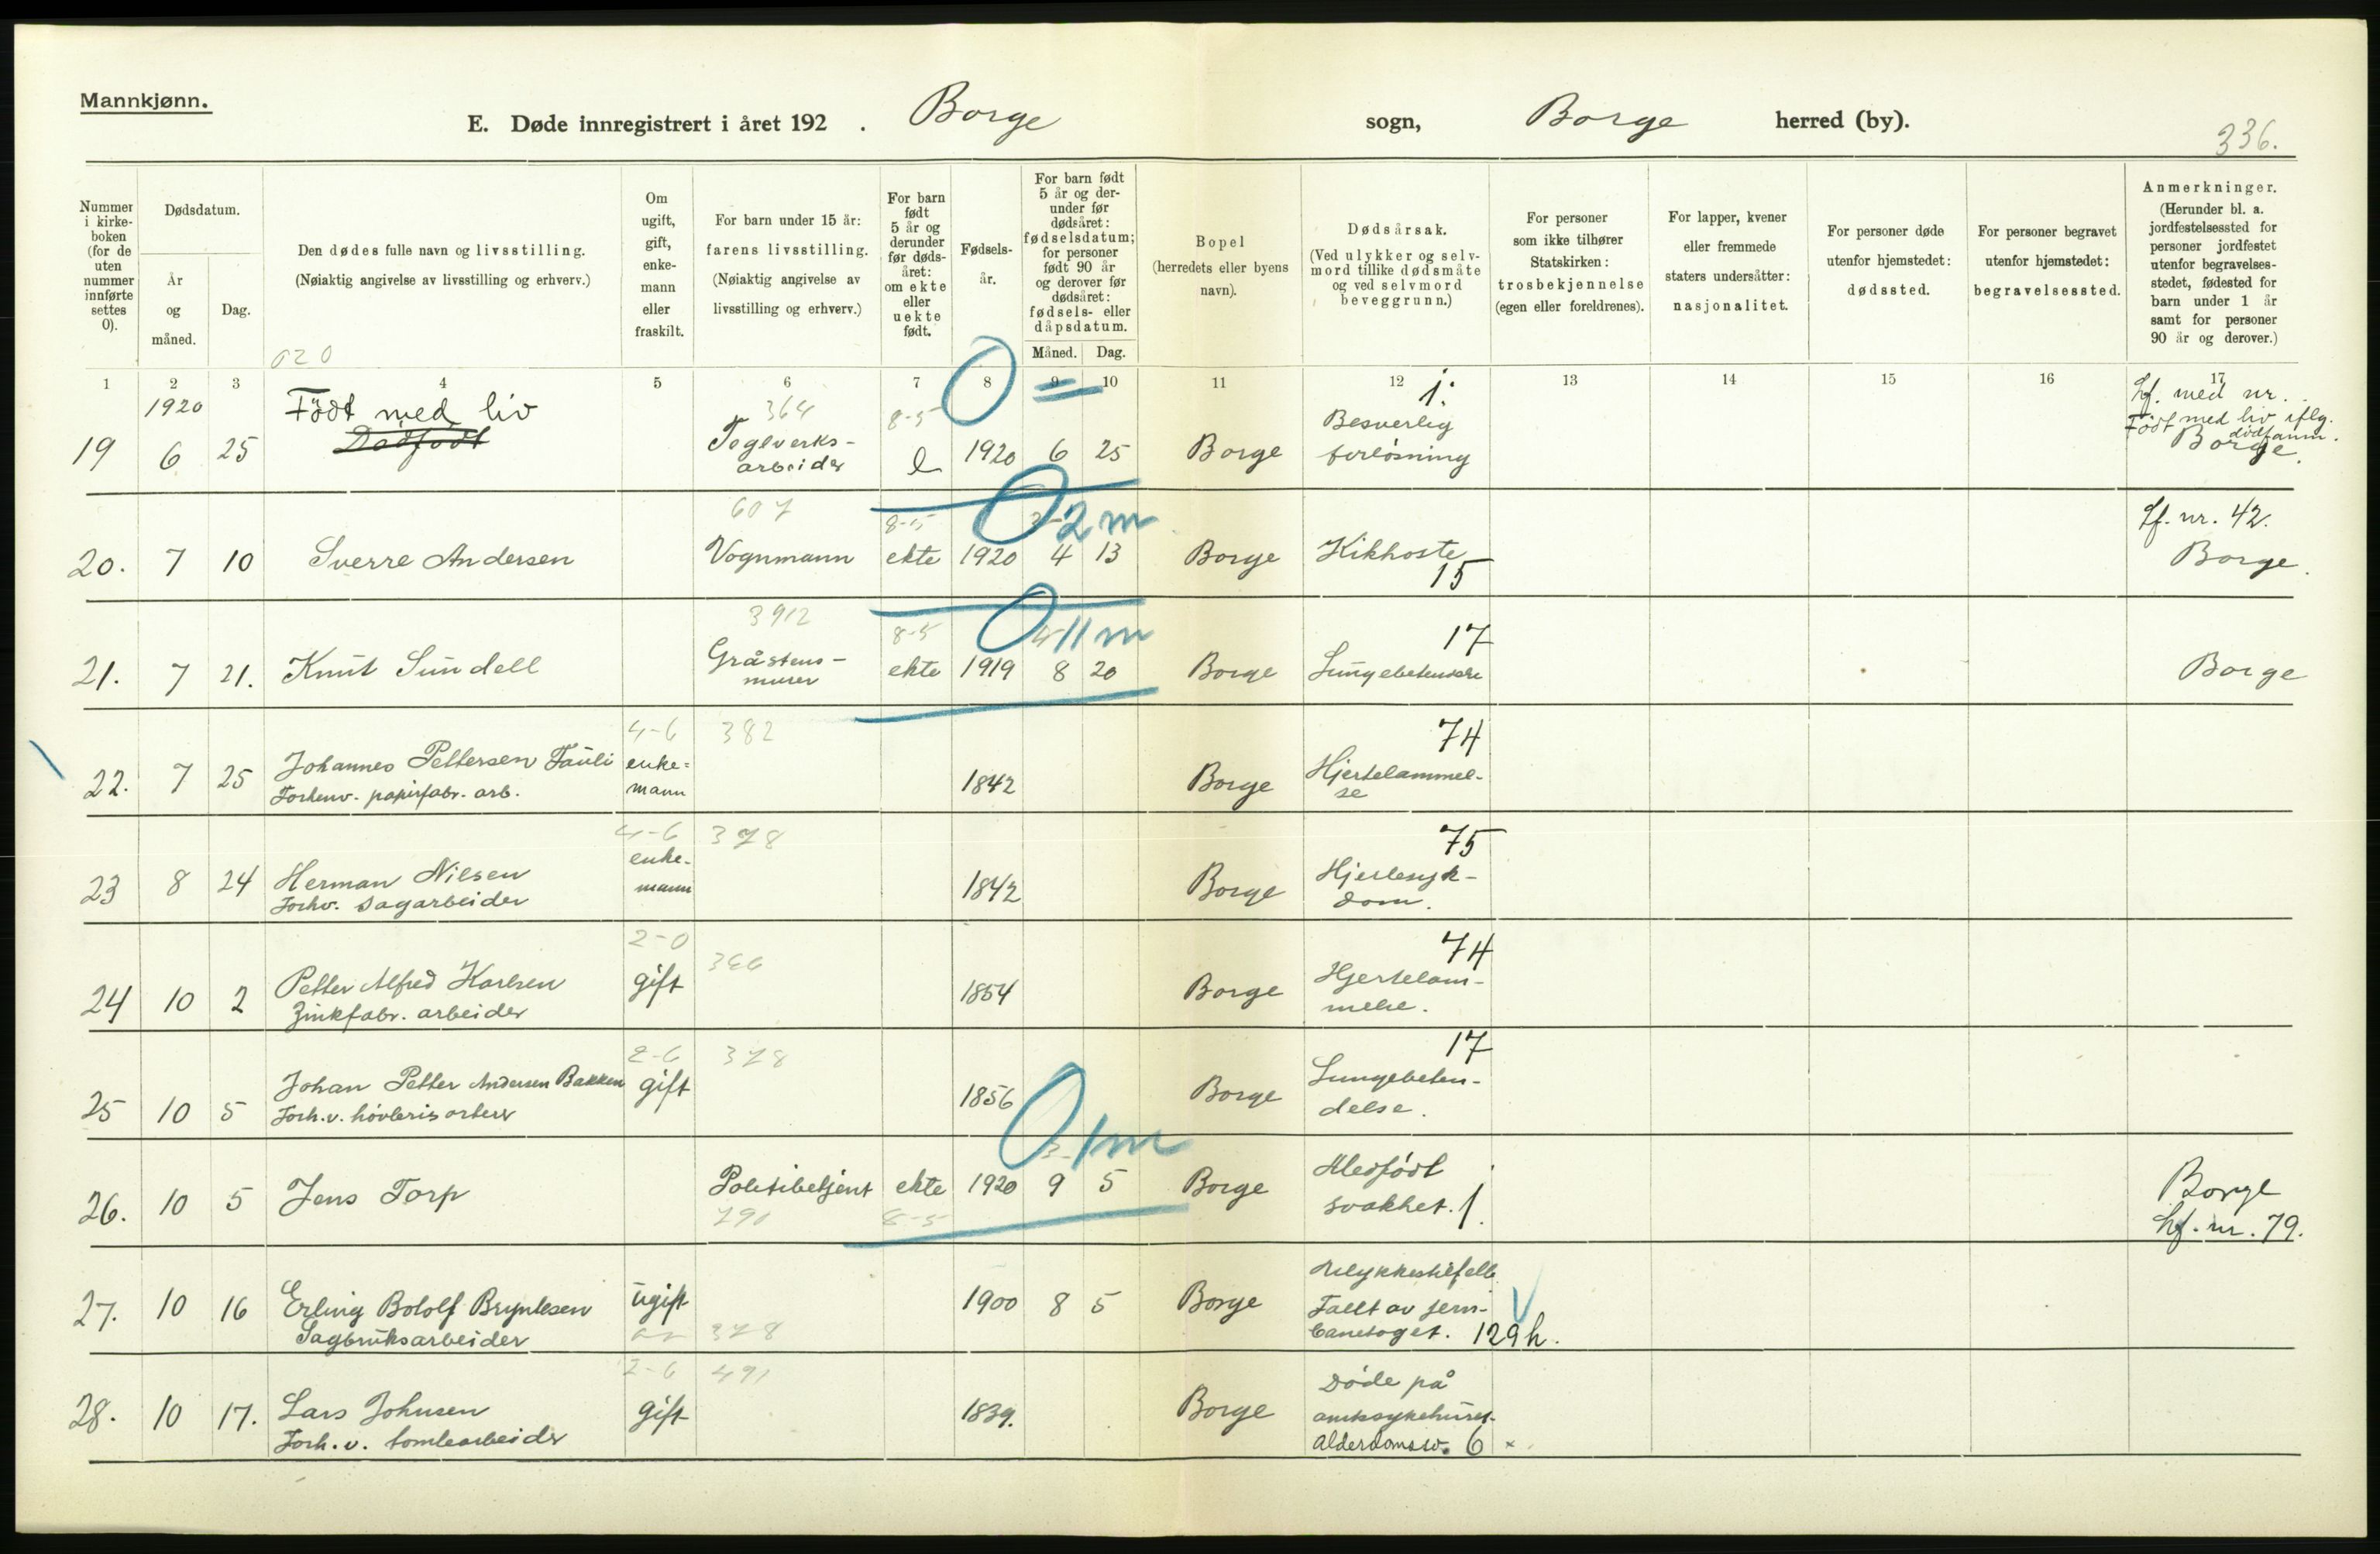 Mannkjønn.
E. Døde innregistrert i året 192 . Borge sogn, Borge herred (by).
336.
Nummer i kirke-boken (for de uten nummer innførte settes 0).
Dødsdatum.
År og måned.
Dag.
Den dødes fulle navn og livsstilling.
(Nøiaktig angivelse av livsstilling og erhverv.)
020
Om ugift, gift, enke-mann eller fraskilt.
For barn under 15 år:
farens livsstilling.
(Nøiaktig angivelse av livsstilling og erhverv.)
For barn født 5 år og derunder før døds-året: om ekte eller uekte født.
Fødsels-år.
For barn født 5 år og der-under før dødsåret: fødselsdatum; for personer født 90 år og derover før dødsåret: fødsels- eller dåpsdatum.
Måned. Dag.
Bopel
(herredets eller byens navn).
Dødsårsak.
(Ved ulykker og selv-mord tillike dødsmåte og ved selvmord beveggrunn.)
For personer som ikke tilhører Statskirken: trosbekjennelse (egen eller foreldrenes).
For lapper, kvener eller fremmede staters undersåtter: nasjonalitet.
For personer døde utenfor hjemstedet: dødssted.
For personer begravet utenfor hjemstedet: begravelsessted.
Anmerkninger.
(Herunder bl. a. jordfestelsessted for personer jordfestet utenfor begravelses-stedet, fødested for barn under 1 år samt for personer 90 år og derover.)
1 2 3 4 5 6 7 8 9 10 11 12 13 14 15 16 17
1920
19 6 25 Født med liv
Dødfødt
364
Teglverks-
arbeider
8-5
e 1920 6 25 Borge
0
1.
Besverlig
forløsning
Lf. med nr.
Født med liv iflg.
dødfanm.
Borge.
20. 7 10 Sverre Andersen
607
Vognmann
8-5
ekte 1920 4 13 Borge Kikhoste
0 2 m
15
Lf. nr. 42.
Borge.
21. 7 21. Knut Sundell
3912
Gråstens-
murer
8-5
ekte 1919 8 20 Borge
0 11 m
17
Lungebetendelse
Borge
22. 7 25 Johannes Pettersen Tauli
Forhenv. papirfabr. arb.
4-6
enke-
mann
382
1842 Borge
74
Hjertelammel-
se
23 8 24 Herman Nilsen
Forhv. sagarbeider
4-6
enke-
mann
378
1842 Borge
75
Hjertesyk-
dom.
24 10 2 Petter Alfred Karlsen
Zinkfabr. arbeider
2-0
gift
366
1854 Borge
74
Hjertelam-
melse.
25 10 5 Johan Petter Andersen Bakken
Forh.v. høvleriarbeider
2-6
gift
378
1856 Borge
17
Lungebeten-
delse.
26. 10 5 Jens Torp
Politibetjent
791
ekte
8-5
1920 9 5 Borge
0 1 m
Medfødt
svakhet. 1.
Borge
Lf. nr. 79.
27. 10 16 Erling Botolf Bryntesen
Sagbruksarbeider
ugift
378
1900 8 5 Borge
Ulykkestilfelle
Falt av jern-
banetoget. 129h.
28. 10 17. Lars Johnsen
Forh. v. tomtearbeider
2-6
gift
491
1839. Borge
Døde på
amtssykehuset.
Alderdomssv. 6 x